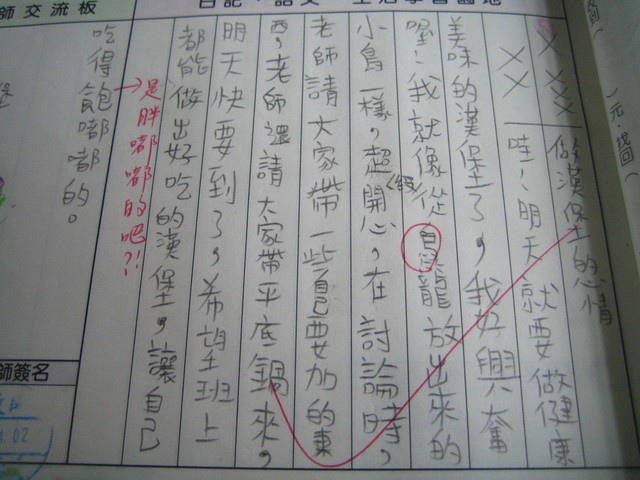 做漢堡的心情
哇！明天就要做健康
美味的漢堡了，我好興奮
喔！我就像從息龍放出來的
小鳥一樣，超級開心，在討論時，
老師請大家帶一些自己要加的東
西，老師還請大家帶平底鍋來，
明天快要到了，希望班上
都能做出好吃的漢堡，讓自己
是胖嘟嘟的吧?!
吃得飽嘟嘟的。
師交流板
師簽名